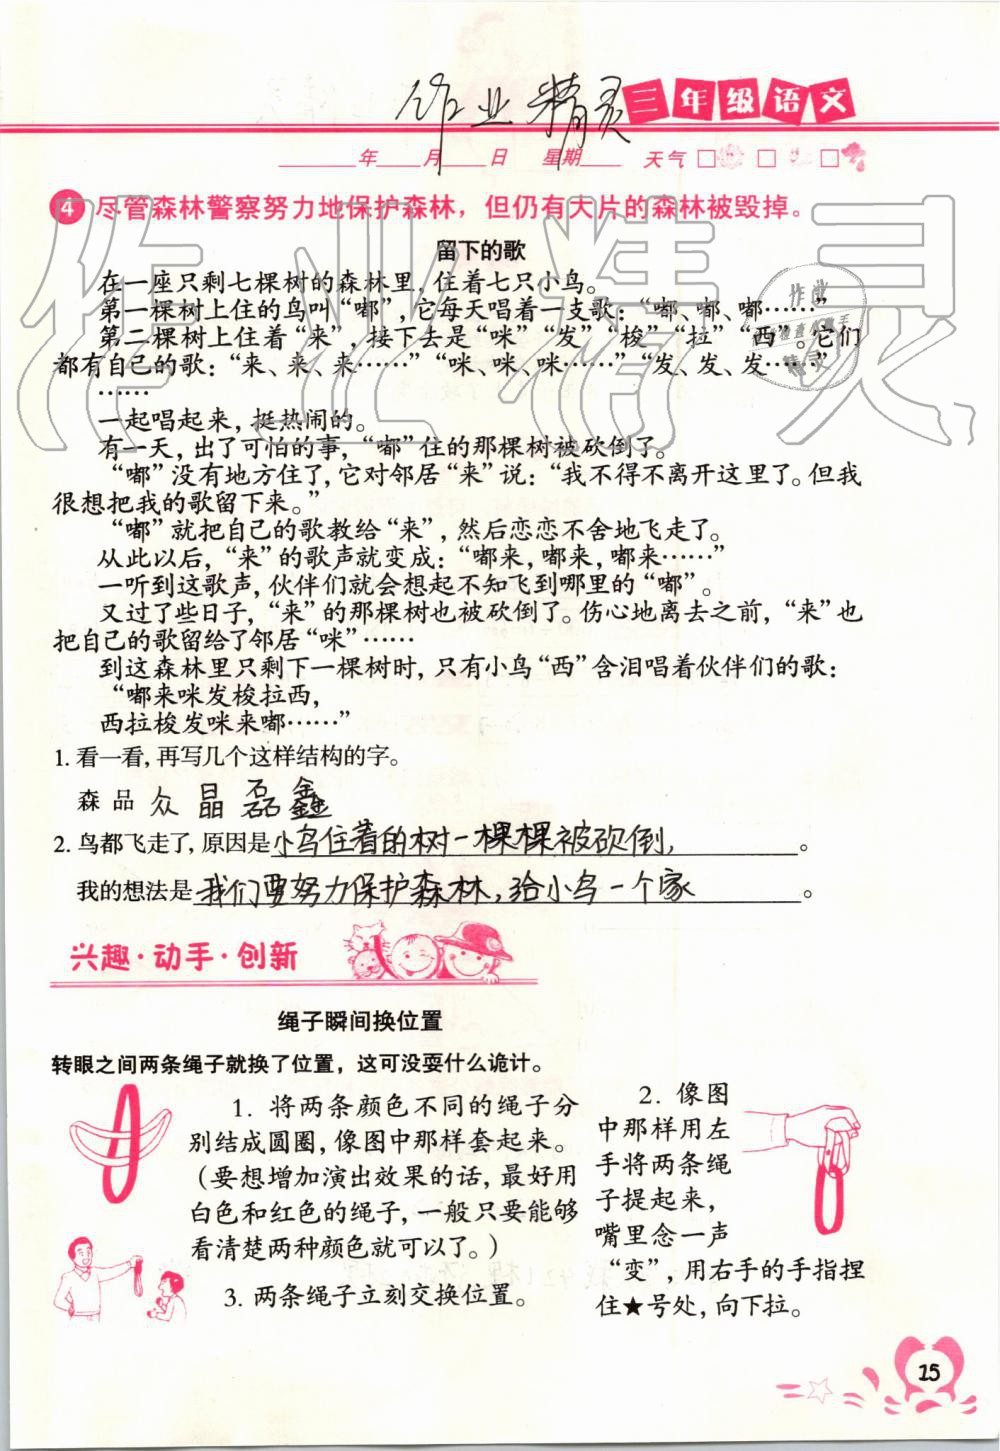 作业精灵 三年级语文
____年____月____日 星期____ 天气
4 尽管森林警察努力地保护森林，但仍有大片的森林被毁掉。
留下的歌
在一座只剩七棵树的森林里，住着七只小鸟。
第一棵树上住的鸟叫“嘟”，它每天唱着一支歌：“嘟、嘟、嘟……”
第二棵树上住着“来”，接下去是“咪”“发”“梭”“拉”“西”。它们
都有自己的歌：“来、来、来……”“咪、咪、咪……”“发、发、发……”
……
一起唱起来，挺热闹的。
有一天，出了可怕的事，“嘟”住的那棵树被砍倒了。
“嘟”没有地方住了，它对邻居“来”说：“我不得不离开这里了。但我
很想把我的歌留下来。”
“嘟”就把自己的歌教给“来”，然后恋恋不舍地飞走了。
从此以后，“来”的歌声就变成：“嘟来，嘟来，嘟来……”
一听到这歌声，伙伴们就会想起不知飞到哪里的“嘟”。
又过了些日子，“来”的那棵树也被砍倒了。伤心地离去之前，“来”也
把自己的歌留给了邻居“咪”……
到这森林里只剩下一棵树时，只有小鸟“西”含泪唱着伙伴们的歌：
“嘟来咪发梭拉西，
西拉梭发咪来嘟……”
1. 看一看，再写几个这样结构的字。
森 品 众 晶 磊 鑫
2. 鸟都飞走了，原因是小鸟住着的树一棵棵被砍倒，。
我的想法是我们要努力保护森林，给小鸟一个家。
兴趣·动手·创新
绳子瞬间换位置
转眼之间两条绳子就换了位置，这可没耍什么诡计。
1. 将两条颜色不同的绳子分
别结成圆圈，像图中那样套起来。
（要想增加演出效果的话，最好用
白色和红色的绳子，一般只要能够
看清楚两种颜色就可以了。）
2. 像图
中那样用左
手将两条绳
子提起来，
嘴里念一声
“变”，用右手的手指捏
住★号处，向下拉。
3. 两条绳子立刻交换位置。
15
作业精灵